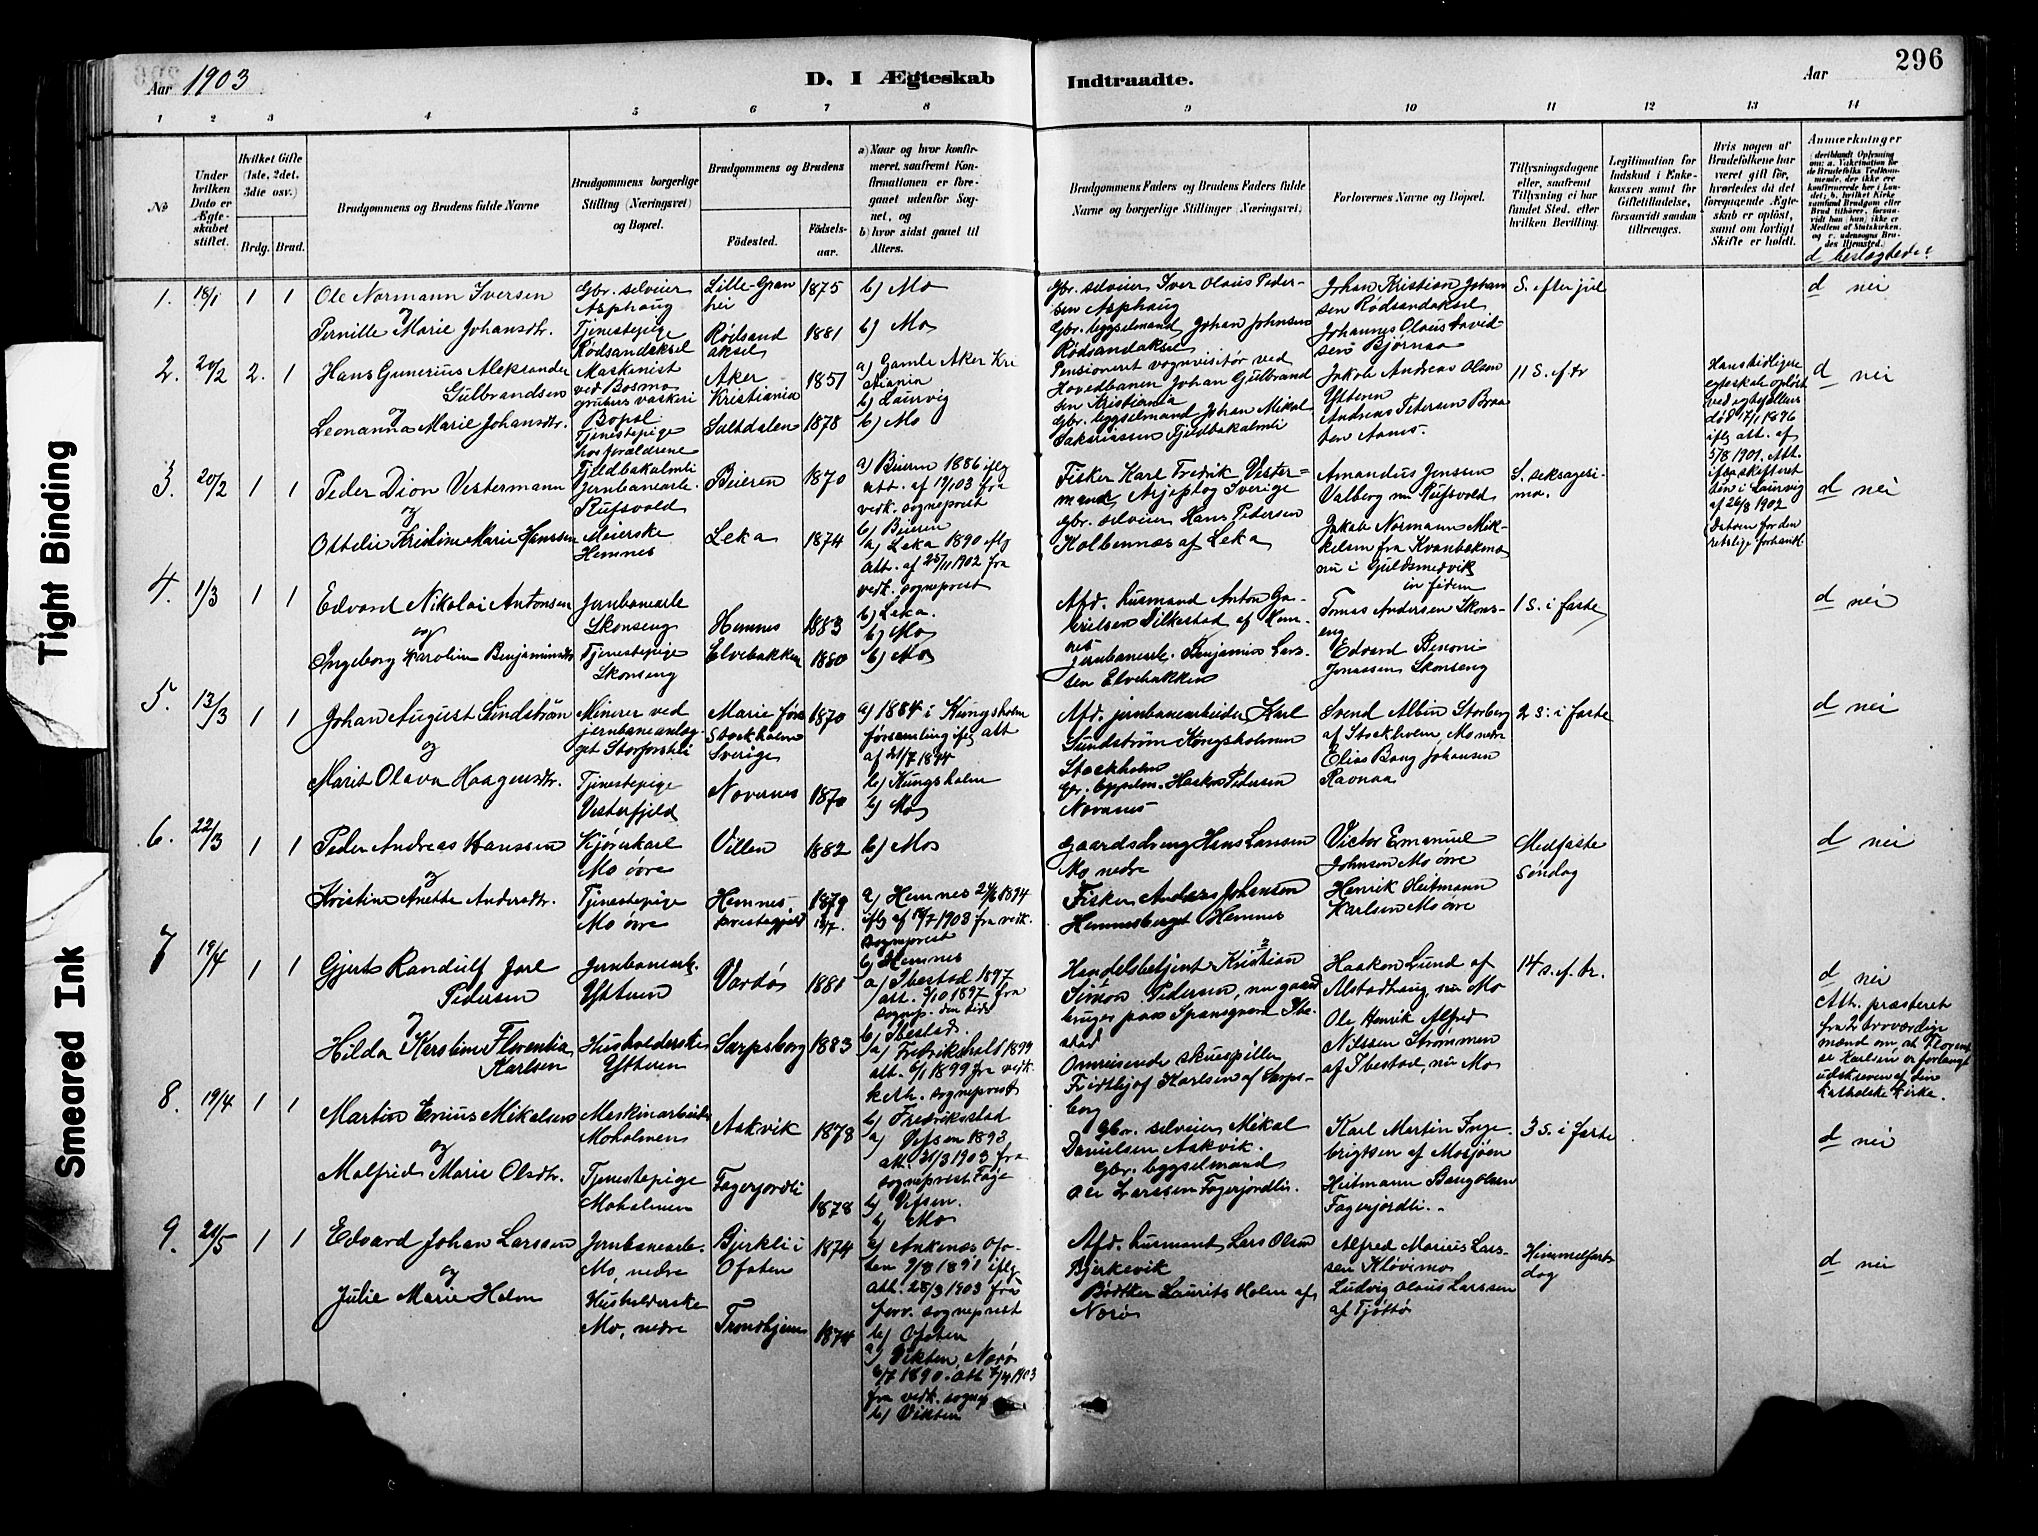 296
Aar 1903
D. I Ægteskab
Indtraadte.
Aar
1 2 3 4 5 6 7 8 9 10 11 12 13 14
No
Under hvilken Dato er Ægteskabet stiftet.
Hvilket Gifte (1ste, 2det, 3die osv.)
Brdg. Brud.
Brudgommens og Brudens fulde Navne
Brudgommens borgerlige Stilling (Næringsvei) og Bopæl.
Brudgommens og Brudens
Fødested.
Fødselsaar.
a) Naar og hvor konfirmeret, saafremt Konfirmationen er foregaaet udenfor Sognet, og
b) hvor sidst gaaet til Alters.
Brudgommens Faders og Brudens Faders fulde Navne og borgerlige Stillinger (Næringsvei)
Forlovernes Navne og Bopæl.
Tillysningsdagene eller, saafremt Tillysning ei har fundet Sted, efter hvilken Bevilling.
Legitimation for Indskud i Enkekassen samt for Giftetilladelse, forsaavidt saadan tiltrænges.
Hvis nogen af Brudefolkene har været gift før, hvorledes da det foregaaende Ægteskab er opløst, samt om lovligt Skifte er holdt.
Anmærkninger
d beslægtede?
1. 18/1 1 1
Ole Normann Iversen
og
Pernille Marie Johansdtr.
Gbr. selveier
Asphaug
Tjenestepige
Rødsandaksel
Lille-Granhei
Rødsandaksel
1875
1881
b) Mo
b) Mo
Gbr. selveier Iver Olaus Pedersen Asphaug
Gbr. bygselmand Johan Johnsen
Rødsandaksel
Johan Kristian Johansen Rødsandaksel
Johannes Olaus Davidsen Bjørnaa
S. efter jul
d nei
2. 20/2 2. 1
Hans Gunerius Aleksander
Gulbrandsen
og
Leonanna Marie Johansdtr.
Maskinist
ved Bosmo
grubers vaskeri
Bopæl
Tjenestepige
hos forældrene
Fjeldbakalmli
Aker
Kristiania
Saltdalen
1851
1878
a) Gamle Aker Kristiania
b) Laurvig
b) Mo
Pensioneret vognvisitør ved
Hovedbanen Johan Gulbrandsen Kristiania
Gbr. bygselmand Johan Mikal
Sakariassen Fjeldbakalmli
Jakob Andreas Olsen
Ytteren
Andreas Petersen Braaten Aanes.
11 S. ef. tr
Hans tidligere
egteskab opløst
ved egtefællens
død 17/1 1896
iflg att. af
5/8 1901. Att.
ifra skifteret
ten i Laurvig
af 26/8 1902
d nei
3. 20/2 1 1
Peder Dion Vestermann
og
Ottelie Kristine Marie Hanssen
Jernbanearb.
Rufsvold
Meierske
Hemnes
Beieren
Leka
1870
1874
a) Beiern 1886 iflg
att. af 19/1 03 fra
vedk. sogneprest
b) Beieren
a) Leka 1890 iflg
att. af 25/11 1902 fra
vedk. sogneprest
b) Leka.
Fisker Karl Fredrik Vestermann, Arjeplog Sverige
Gbr. selveier Hans Pedersen
Kolbennæs af Leka
Amandus Jenssen
Valberg nu Rufsvold
Jakob Normann Mikkelsen fra Kvanbakmo
nu i Guldsmedvik
S. seksagesima.
d nei
4. 1/3 1 1
Edvard Nikolai Antonsen
og
Ingeborg Karoline Benjaminsdtr
Jernbanearb
Skonseng
Tjenestepige
Skonseng
Hemnes
Elvebakken
1883
1880
b) Mo
b) Mo
Afd. husmand Anton Gabrielsen Silkestad af Hemnes
Jernbanearb. Benjamin Larssen Elvebakken
Tomas Andersen Skonseng
Edvard Benoni
Jonassen Skonseng
1 S. i faste
d nei
5. 13/3 1 1
Johan August Sundström
og
Marit Olava Haagensdtr.
Minerer ved
jernbaneanlægget Storforshei
Tjenestepige
Vesterfjeld
Marie förs
Stockholm
Sverige
Novernes
1870
1870
a) 1884 i Kungsholm
församling iflg att
af 21/7 1894
b) Kungsholm
b) Mo
Afd. jernbanearbeider Karl
Sundström Kongsholmen
Stockholm
Gbr. bygselm. Haakon Pedersen
Novenes
Svend Albin Storberg
af Stockholm, Mo nedre
Elias Bang Johansen
Ravnaa
2 S. i faste
d nei
6. 22/3 1 1
Peder Andreas Hanssen
og
Kristine Anette Andersdtr.
Kjørekarl
Mo övre
Tjenestepige
Mo övre
Villen
Hemnes
prestegjeld
1882
1879
13/7.
b) Mo
a) Hemnes 24/6 1894
iflg af 18/7 1903 fra vedk.
sogneprest
b) Hemnes
Gaardsdreng Hans Larsen
Mo nedre
Fisker Anders Johansen
Hemnesberget Hemnes
Victor Emanuel
Johnsen Mo övre
Henrik Heitmann
Karlsen Mo övre
Midfaste
søndag
d nei
7 19/4 1 1
Gjert Randulf Jarl
Pedersen
og
Hilda Kerstine Florentia
Karlsen
Jernbanearb.
Ytteren
Husholderske
Ytteren
Vardö
Sarpsborg
1881
1883
a) Ibestad 1897
att. 3/10 1897 fra
sognep. den tids
b) Ibestad.
a) Fredrikshald 1899
att. 6/1 1899 fra vedk.
kath. sogneprest
b) Fredriksstad
Handelsbetjent Kristian
Simon Pedersen, nu gaardbruger paa Spansgaard Ibestad
Omreisende skuespiller
Fridthjof Karlsen af Sarpsborg
Haakon Lund af
Alstadhaug, nu Mo
Ole Henrik Alfred
Nilssen Strømmen
af Ibestad, nu Mo
14 s. ef. tr.
d nei
Att. præsteret
fra 2 troværdige
mænd om at Florentse Karlsen er forlangt
udskreven af den
katholske kirke.
8. 19/4 1 1
Martin Enius Mikalsen
og
Malfrid Marie Olsdtr.
Maskinarbeider
Moholmen
Tjenestepige
Moholmen
Aakvik
Fagerjordli
1878
1878
a) Vefsen 1893
att. 31/3 1903 fra
sogneprest Fage
b) Vefsen.
b) Mo
Gbr. selveier Mikal
Danielsen Aakvik.
Gbr. bygselmand
Ole Larssen Fagerjordli.
Karl Martin Ingebrigtsen af Mosjøen
Heitmann Bang Olsen
Fagerjordli.
3 S. i faste
d nei
9. 21/5 1 1
Edvard Johan Larssen
og
Julie Marie Holm
Jernbanearb.
Mo, nedre
Husholderske
Mo, nedre
Bjerkli i
Ofoten
Trondhjem
1874
1874
a) Ankenæs Ofoten 9/8 1891 iflg
att. 25/3 1903 fra
forv. sogneprest
b) Ofoten
a) Vikten, Nærö
6/7 1890. att 7/4 1903
fra vedk. sognep
b) Vikten
Afd. husmand Lars Olsen
Bjerkevik
Bødtker Laurits Holm af
Nærö
Alfred Marius Larssen Kløvimo
Ludvig Olaus Larssen
af Tjøttö
Himmelfartsdag
d nei
Tight Binding
Smeared Ink